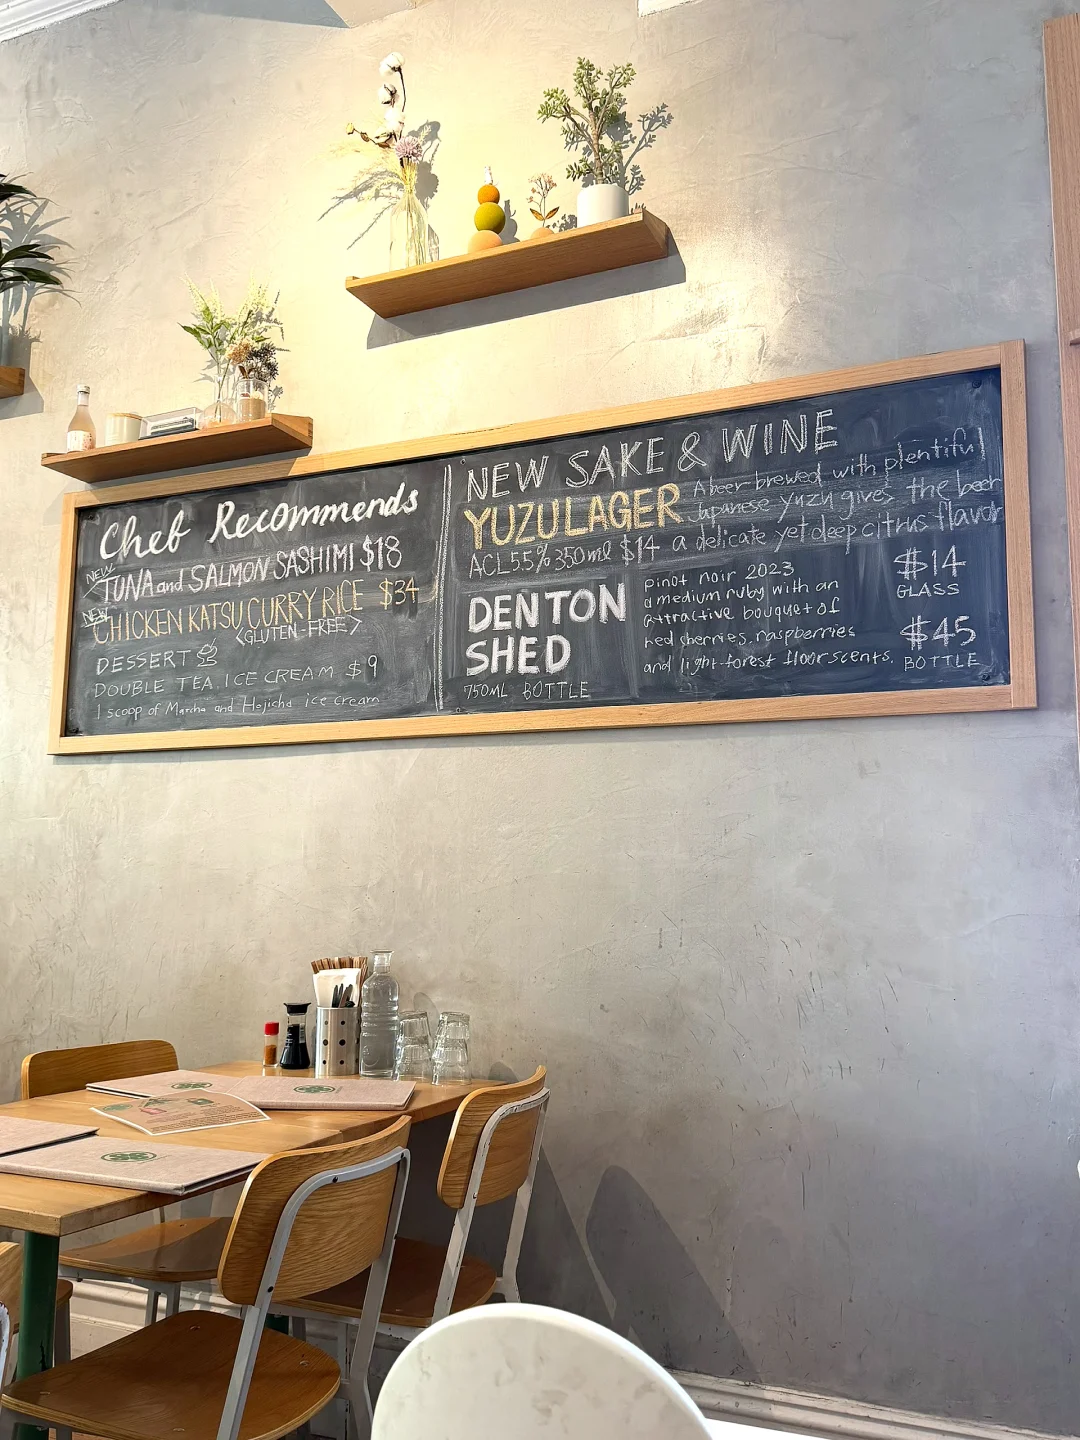 Chef Recommends
NEW TUNA and SALMON SASHIMI $18
NEW CHICKEN KATSU CURRY RICE $34
<GLUTEN-FREE>
DESSERT
DOUBLE TEA ICE CREAM $9
1 scoop of Matcha and Hojicha ice cream
NEW SAKE & WINE
YUZU LAGER
A beer brewed with plentiful
Japanese yuzu gives the beer
a delicate yet deep citrus flavor
ACL5.5% 350ml $14
DENTON
SHED
750ML BOTTLE
pinot noir 2023
a medium ruby with an
attractive bouquet of
red cherries, raspberries
and light forest floor scents.
$14
GLASS
$45
BOTTLE